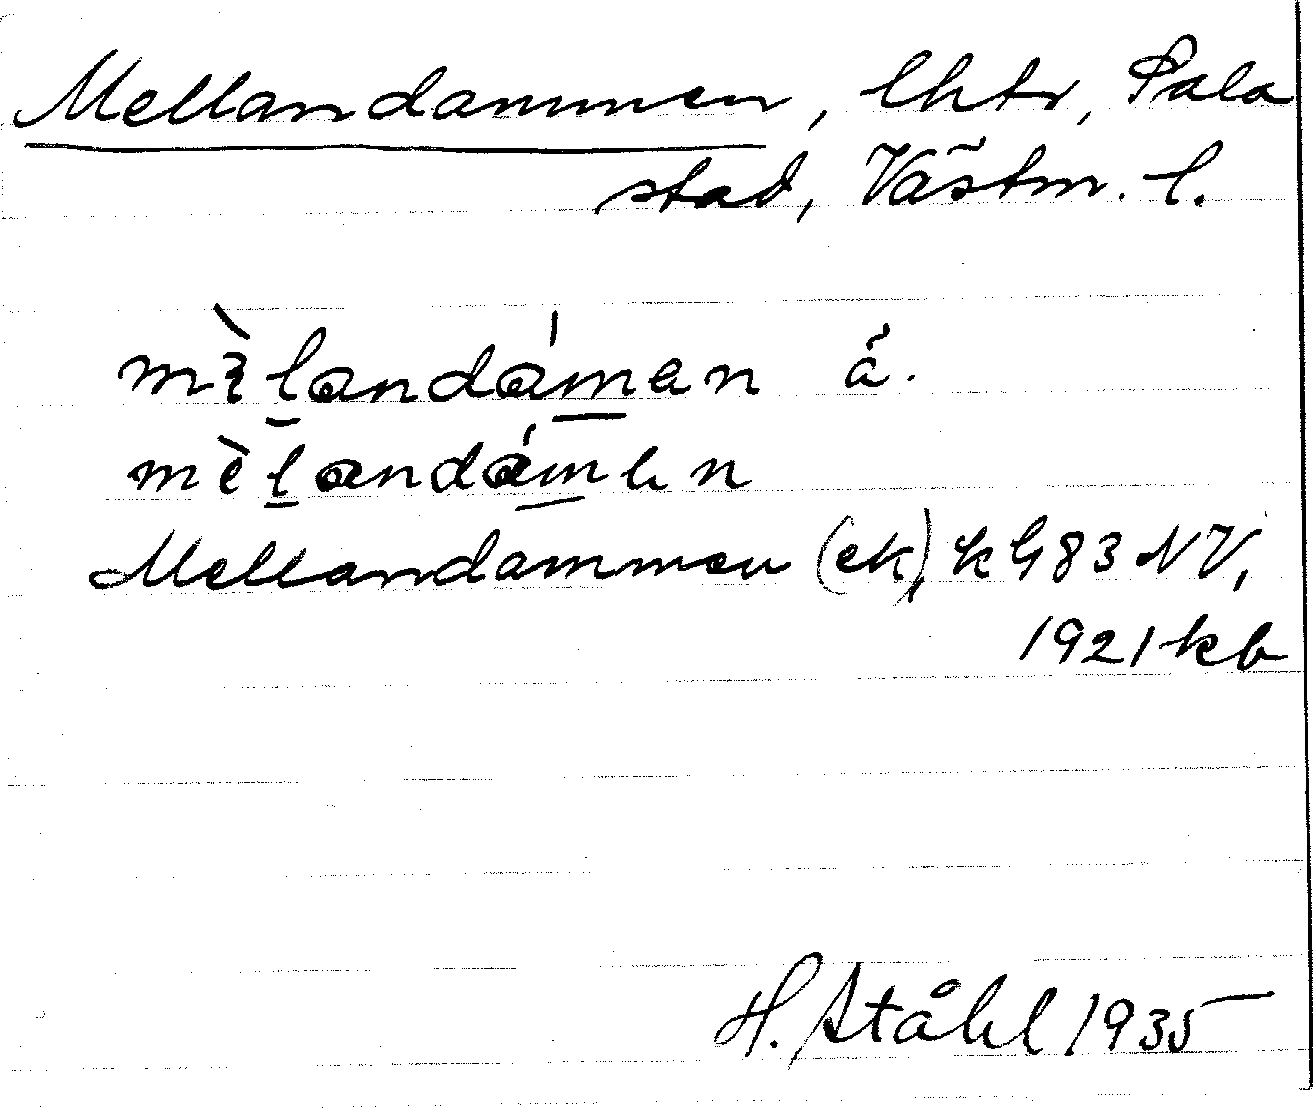 Mellandammen, lhtr, Sala
stad, Västm. l.
mɛ̀l̲andám̲en ä.
mèl̲andám̲en
Mellandammen (ek), k G83 NV,
1921 kb
H. Ståhl 1935